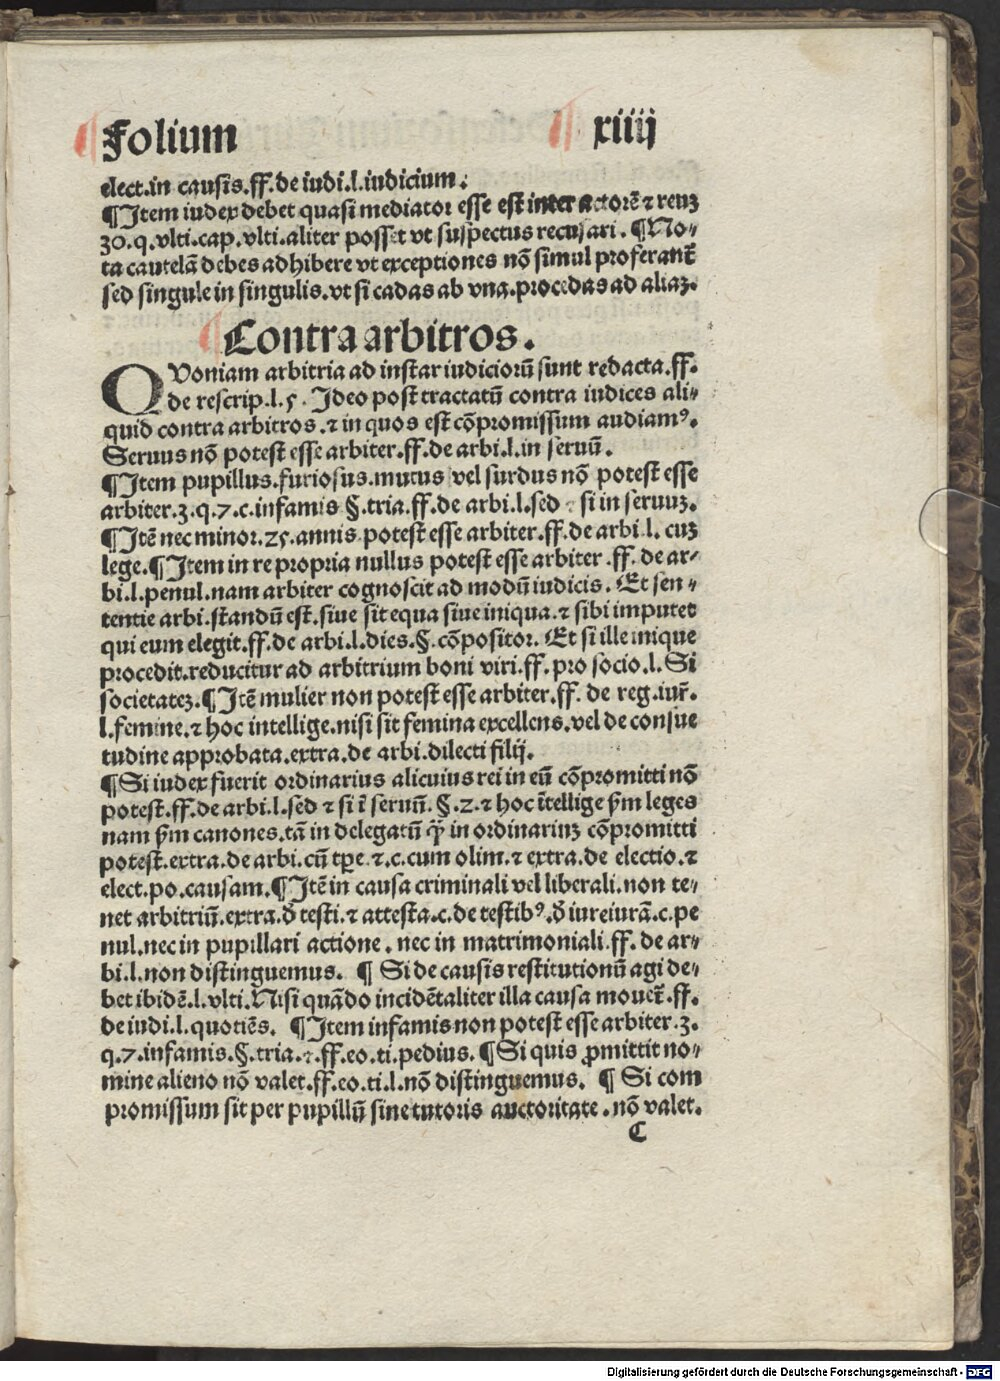 ¶ Folium ¶ xiiij
elect.in causis.ff.de iudi.l.iudicium.
¶Item iudex debet quasi mediator esse est inter actorē ⁊ reuꝫ
30.q.vlti.cap.vlti.aliter posset vt suspectus recusari. ¶No⸗
ta cautelā debes adhibere vt exceptiones nō simul proferant᷑
sed singule in singulis.vt si cadas ab vna.procedas ad aliaꝫ.
¶Contra arbitros.
QVoniam arbitria ad instar iudiciorū sunt redacta.ff.
de rescrip.l.5. Ideo post tractatū contra iudices ali⸗
quid contra arbitros.⁊ in quos est cōpromissum audiamꝰ.
Seruus nō potest esse arbiter.ff.de arbi.l.in seruū.
¶Item pupillus.furiosus.mutus vel surdus nō potest esse
arbiter.3.q.7.c.infamis §.tria.ff.de arbi.l.sed ⁊ si in seruuꝫ.
¶Itē nec minor.25.annis potest esse arbiter.ff.de arbi.l. cuꝫ
lege.¶Item in re propria nullus potest esse arbiter.ff. de ar⸗
bi.l.penul.nam arbiter cognoscit ad modū iudicis. Et sen⸗
tentie arbi.standū est.siue sit equa siue iniqua.⁊ sibi imputet
qui eum elegit.ff.de arbi.l.dies.§.cōpositor. Et si ille inique
procedit.reducitur ad arbitrium boni viri.ff.pro socio.l. Si
societateꝫ.¶Itē mulier non potest esse arbiter.ff. de reg.iur̄.
l.femine.⁊ hoc intellige.nisi sit femina excellens.vel de consue
tudine approbata.extra.de arbi.dilecti filij.
¶Si iudex fuerit ordinarius alicuius rei in eū cōpromitti nō
potest.ff.de arbi.l.sed ⁊ si ī seruū.§.2.⁊ hoc ītellige ẜm leges
nam ẜm canones.tā in delegatū ꝙ̄ in ordinariuꝫ cōpromitti
potest.extra.de arbi.cū tꝑe.⁊.c.cum olim.⁊ extra.de electio.⁊
elect.po.causam.¶Itē in causa criminali vel liberali.non te⸗
net arbitriū.extra.ꝺ̄ testi.⁊ attesta.c.de testibꝰ.ꝺ̄ iureiurā.c.pe
nul.nec in pupillari actione. nec in matrimoniali.ff. de ar⸗
bi.l.non distinguemus. ¶ Si de causis restitutionū agi de⸗
bet ibidē.l.vlti.Nisi quādo incidētaliter illa causa mouet᷑.ff.
de iudi.l.quotiēs. ¶Item infamis non potest esse arbiter.3.
q.7.infamis.§.tria.⁊.ff.eo.ti.pedius.¶Si quis ꝓmittit no⸗
mine alieno nō valet.ff.eo.ti.l.nō distinguemus. ¶ Si com
promissum sit per pupillū sine tutoris auctoritate.nō valet.
C
Digitalisierung gefördert durch die Deutsche Forschungsgemeinschaft - DFG